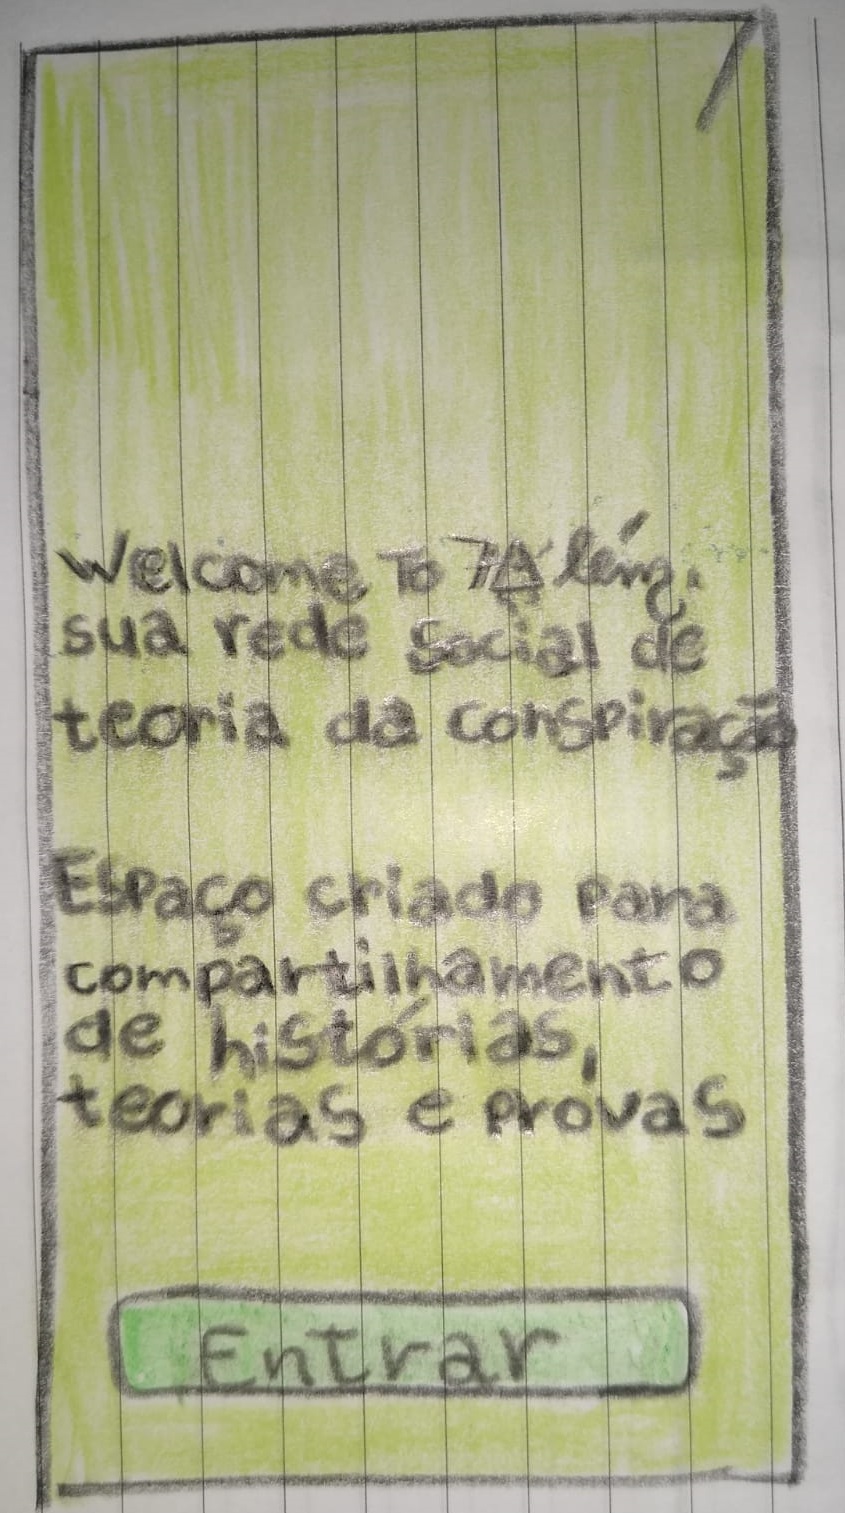 Welcome To
sua rede social de
teoria da conspiração
Espaço criado para
compartilhamento
de histórias,
teorias e provas
Entrar